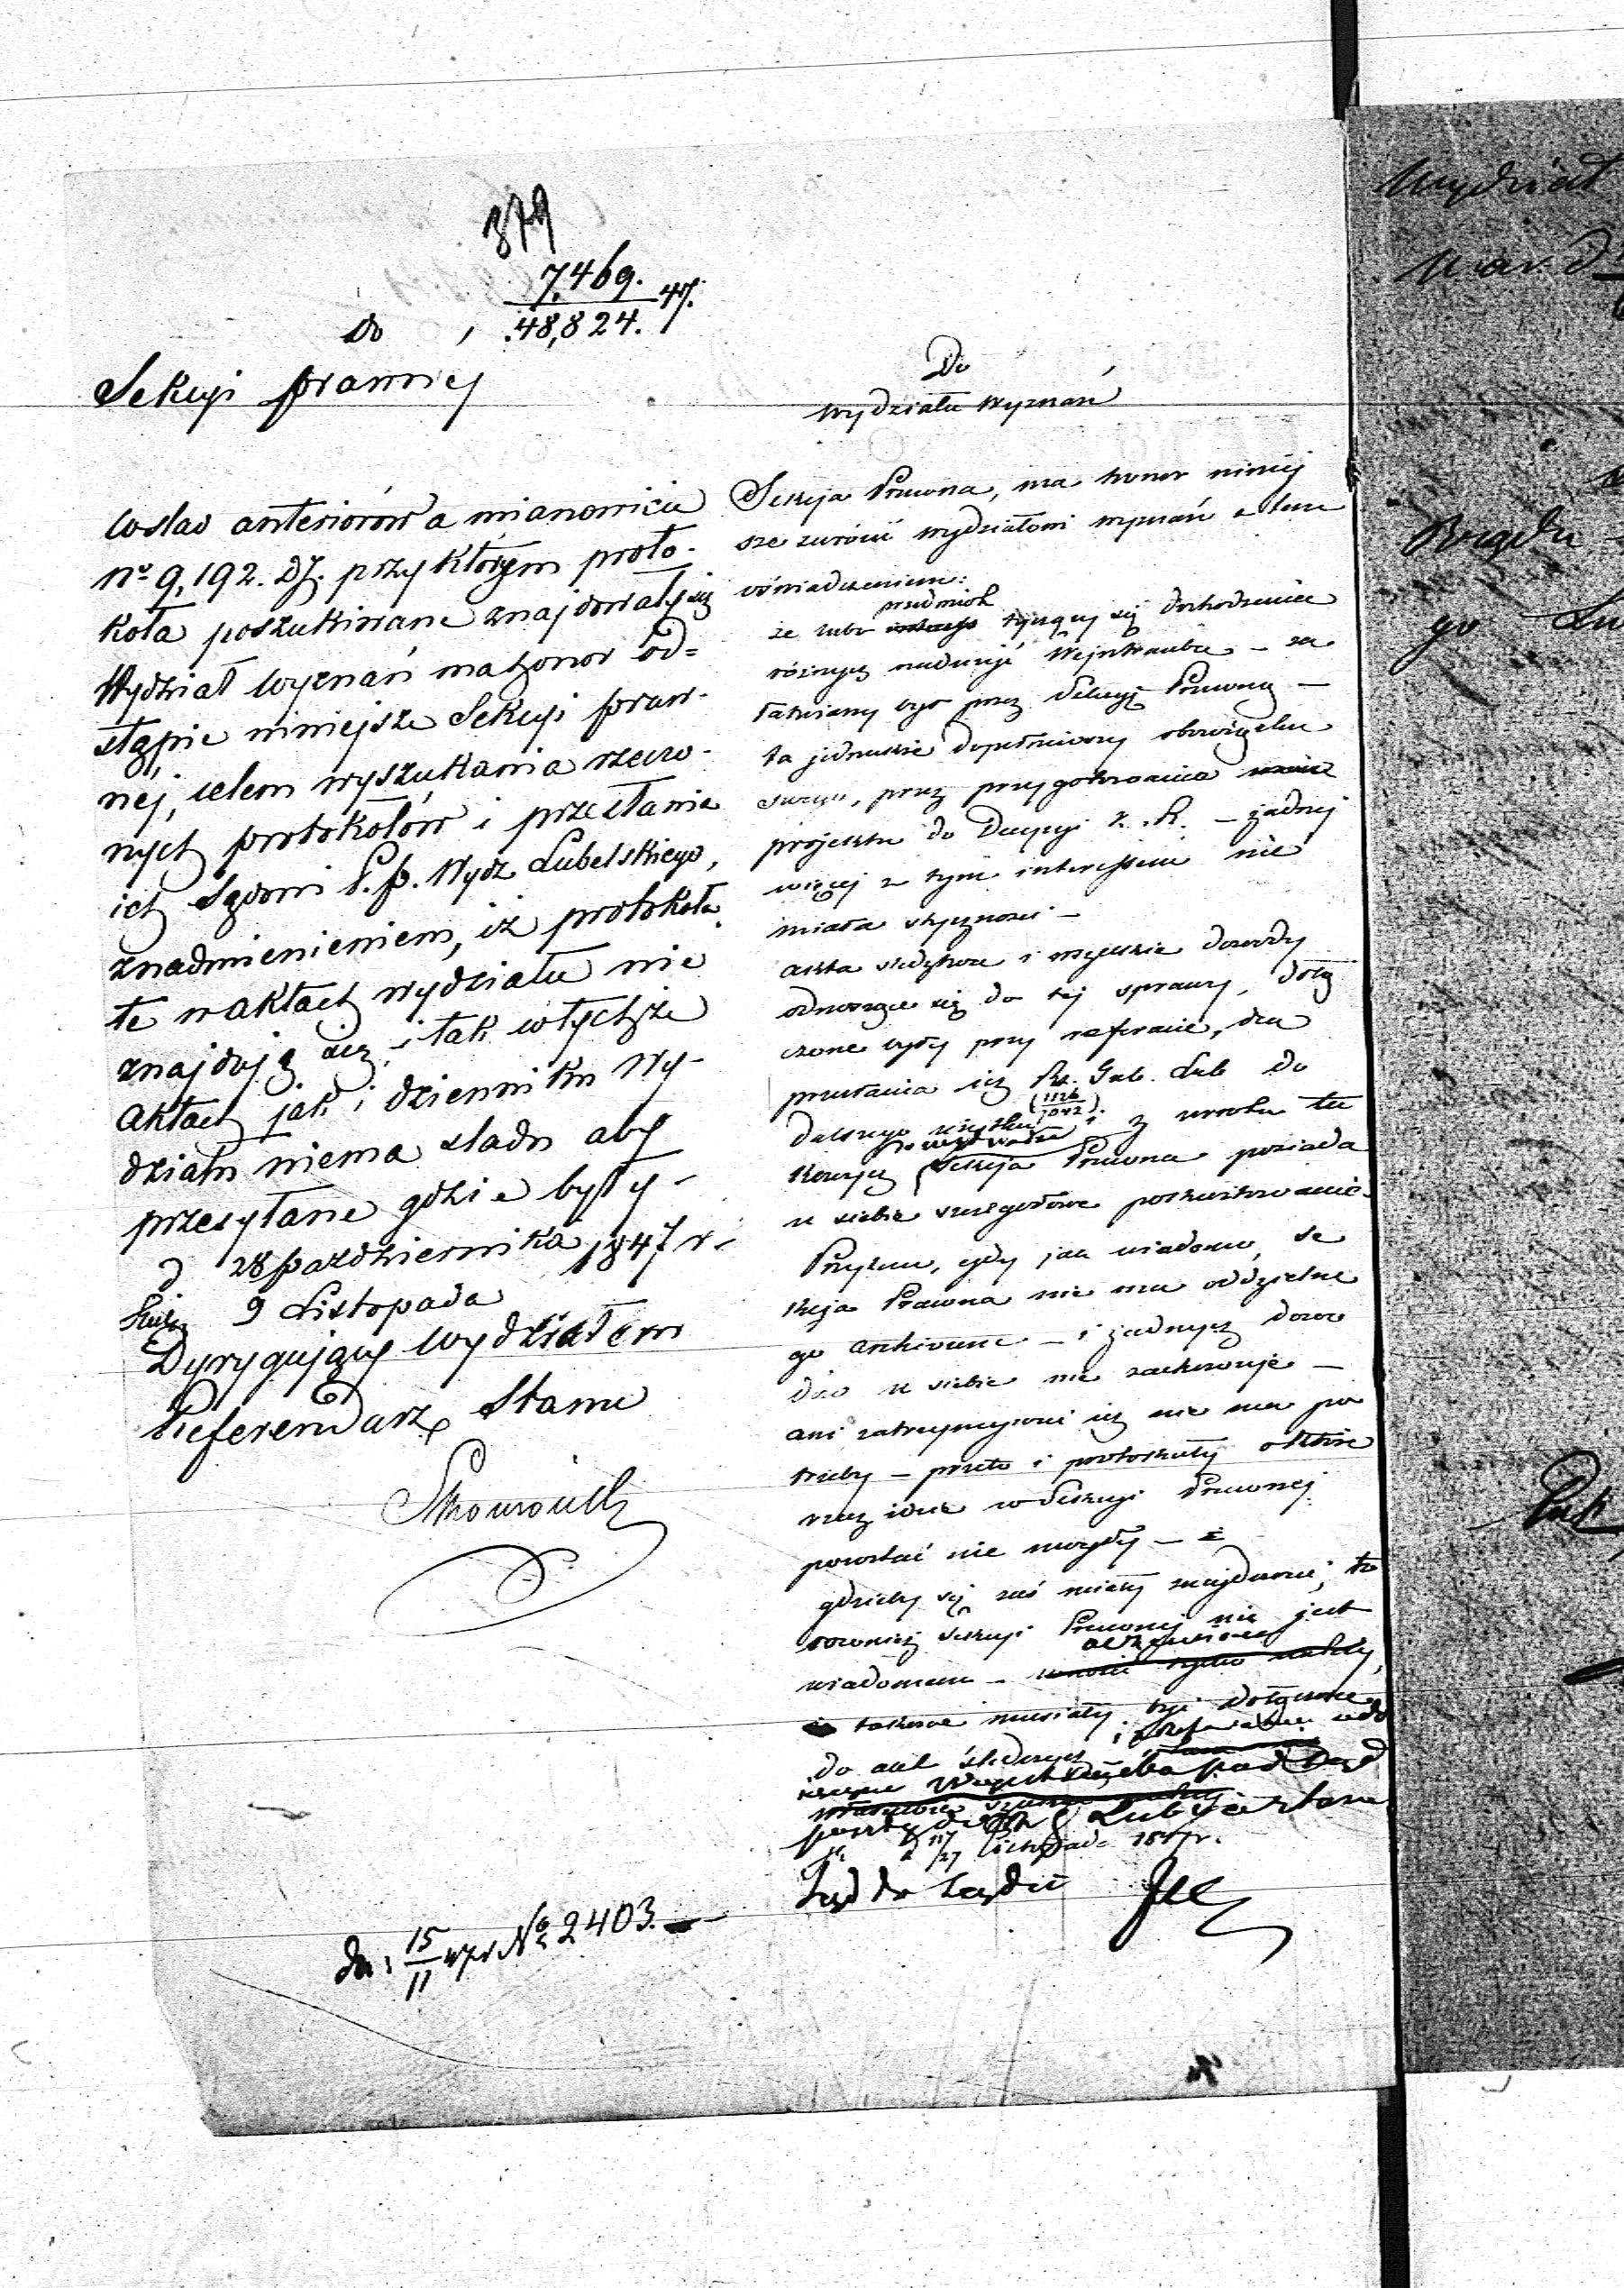 379
7,469.
48,824. 47.
Do
Sekcyi prawnej
wslad anteriorów a mianowicie
No 9,192. DJ. przy którym proto-
koła poszukiwane znajdowały się
Wydział wyznań ma honor od=
stąpić niniejsze Sekcyi praw-
nej, celem wyszukania rzeczo-
nych protokołów i przesłania
ich Sądowi P. p. Wydz Lubelskiego,
znadmienieniem, iż protokoła
te w aktach wydziału nie
znajdują się, i tak w tychże
aktach jak i dzienniku Wy-
działu niema śladu aby
przesyłane gdzie były-
d 28 października 1847 r.
9 Listopada
Dyrygujący Wydziałem
Referendarz Stanu
da: 15/11 47 r No 2403.
Do
Wydziału Wyznań
Sekcja Prawna, ma honor niniej
sze zwrócić wydziałowi wyznań z tem
oświadczeniem:
przedmiot
że lubo tyczący się dochodzenia
różnych nadużyć Wejntrauba – za
łatwiany był przez Sekcyę Prawną –
ta jednakże dopełniwszy obowiązku
swego, przez przygotowanie
projektu do Decyzyi K. R. – żadnej
więcej z tym interessem nie
miała styczności –
akta śledcze i wszelkie dowody
odnoszące się do tej sprawy, dołą
czone były przy referacie, dla
przesłania ich Rz. Gub. Lub do
dalszego użytku (1126/1042).
Sekcja Prawna posiada
u siebie szczegółowe pokwitowanie.
Przytem, gdy jak wiadomo, Se
kcja Prawna nie ma oddzielne
go archiwum – i żadnych dowo
dów u siebie nie zachowuje –
ani zatrzymywać ich nie ma po
trzeby – przeto i protokuły o które
rzecz idzie w Sekcyi Prawnej
pozostać nie mogły –
gdzieby się zaś miały znajdować, to
również Sekcyi Prawnej nie jest
wiadomem –
takowe musiały być dołączone
do akt śledczych i
Lubartowa
17/27 Listopada 1847 r.
Wydział